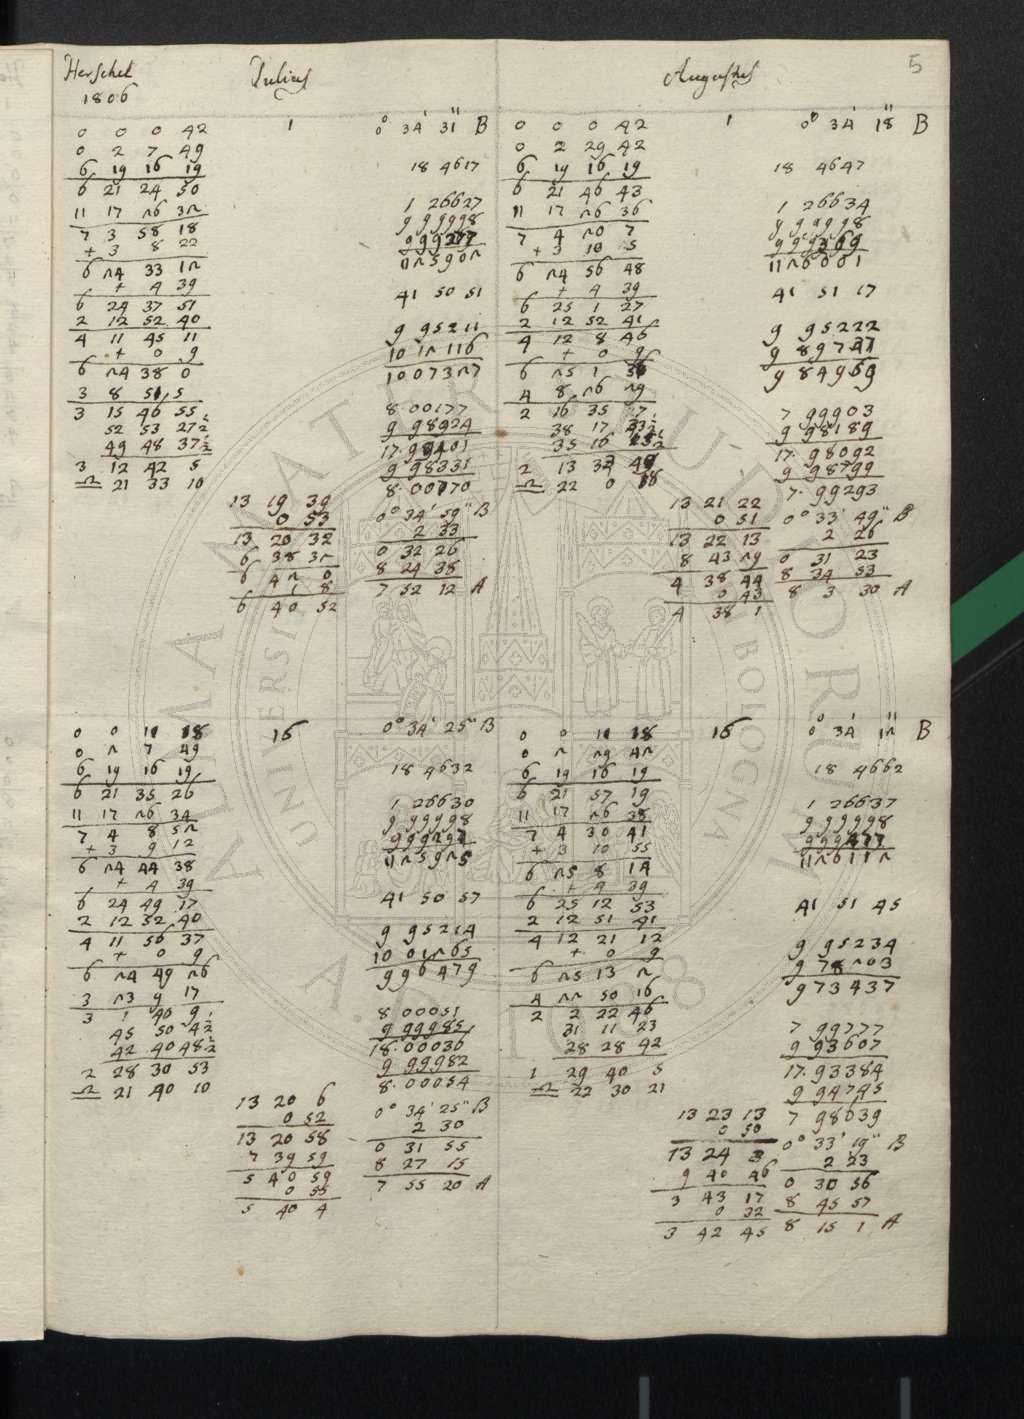 5
Herschel Julius Augustus
1806
0 0 0 42
0 2 7 49
6 19 16 19
6 21 24 50
11 17 26 32
7 3 58 18
+ 3 8 22
6 24 33 12
+ 4 39
6 24 37 51
2 12 52 40
4 11 45 11
+ 0 9
6 24 38 0
3 8 51 5
3 15 46 55
52 53 27½
49 48 37½
3 12 42 5
♎ 21 33 10
1
0° 34' 31" B
18 4617
1 26627
9 99998
999267
1125902
41 50 51
9 95211
10 12116
10 07327
8 00177
9 98924
17.99101
9 98331
8.00770
13 19 39
0 53
13 20 32
6 38 32
6 42 0
1 8
6 40 52
0° 34' 59" B
2 33
0 32 26
8 24 38
7 52 12 A
0 0 0 42
0 2 29 42
6 19 16 19
6 21 46 43
11 17 26 36
7 4 20 7
+ 3 10 5
6 24 56 48
+ 4 39
6 25 1 27
2 12 52 41
4 12 8 46
+ 0 9
6 25 1 36
4 8 26 29
2 16 35 7
38 17
35 16
2 13 32 49
♎ 22 0 18
1
0° 34' 18" B
18 4647
1 26634
9 99998
999369
1126001
41 51 17
9 95222
9 89741
9 84963
7 99903
9 98189
17.98092
9 98799
7.99293
13 21 22
0 51
13 22 13
8 43 29
4 38 44
0 43
4 38 1
0° 33' 49" B
2 26
0 31 23
8 34 53
8 3 30 A
0 0 11 18
0 2 7 49
6 19 16 19
6 21 35 26
11 17 26 34
7 4 8 52
+ 3 9 12
6 24 44 38
+ 4 39
6 24 49 17
2 12 52 40
4 11 56 37
+ 0 9
6 24 49 26
3 23 9 17
3 1 40 9
45 50 4½
42 40 48½
2 28 30 53
♎ 21 40 10
16
0° 34' 25" B
18 4632
1 26630
9 99998
999297
1125925
41 50 57
9 95214
10 01265
9 96479
8.00051
9 99985
18.00036
9.99982
8.00054
13 20 6
0 52
13 20 58
7 39 59
5 40 59
0 55
5 40 4
0° 34' 25" B
2 30
0 31 55
8 27 15
7 55 20 A
0 0 11 18
0 2 29 42
6 19 16 19
6 21 57 19
11 17 26 38
7 4 30 41
+ 3 10 55
6 25 8 14
+ 4 39
6 25 12 53
2 12 51 41
4 12 21 12
+ 0 9
6 25 13 2
4 22 50 16
2 2 22 46
31 11 23
28 28 42
1 29 40 5
♎ 22 30 21
16
0° 34' 12" B
18 4662
1 26637
9 99998
999477
1126112
41 51 45
9 95234
9 78203
9 73437
7 99777
9 93607
17.93384
9 94745
7 98639
13 23 13
0 50
13 24 3
9 40 46
3 43 17
0 32
3 42 45
0° 33' 19" B
2 23
0 30 56
8 45 57
8 15 1 A
ALMA MATER STUDIORUM
UNIVERSI DI BOLOGNA
A.D. 1088